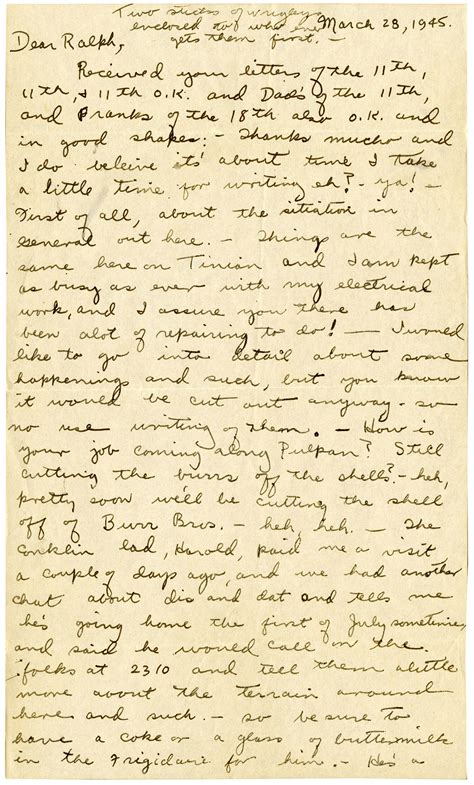 Two sticks of wrigleys
enclosed to who ever
gets them first. –
March 28, 1945.
Dear Ralph,
Received your letters of the 11th,
11th, & 11th O.K. and Dad's of the 11th,
and Franks of the 18th also O.K. and
in good shapes. – Thanks mucho and
I do beleive it's about time I take
a little time for writing eh? – ya! –
First of all, about the sitiation in
general out here. – Things are the
same here on Tinian and I am kept
as busy as ever with my electrical
work, and I assure you there has
been alot of repairing to do! — I would
like to go into detail about some
happenings and such, but you know
it would be cut out anyway – so
no use writing of them. – How is
your job coming along Pulpan? Still
cutting the burrs off the shells? – heh,
pretty soon we'll be cutting the shell
off of Burr Bros. – heh, heh. – The
Conklin lad, Harold, paid me a visit
a couple of days ago, and we had another
chat about dis and dat and tells me
he's going home the first of July sometime,
and said he would call on the
folks at 2310 and tell them alittle
more about the terrain around
here and such. – so be sure to
have a coke or a glass of buttermilk
in the Frigidair for him. – He's a